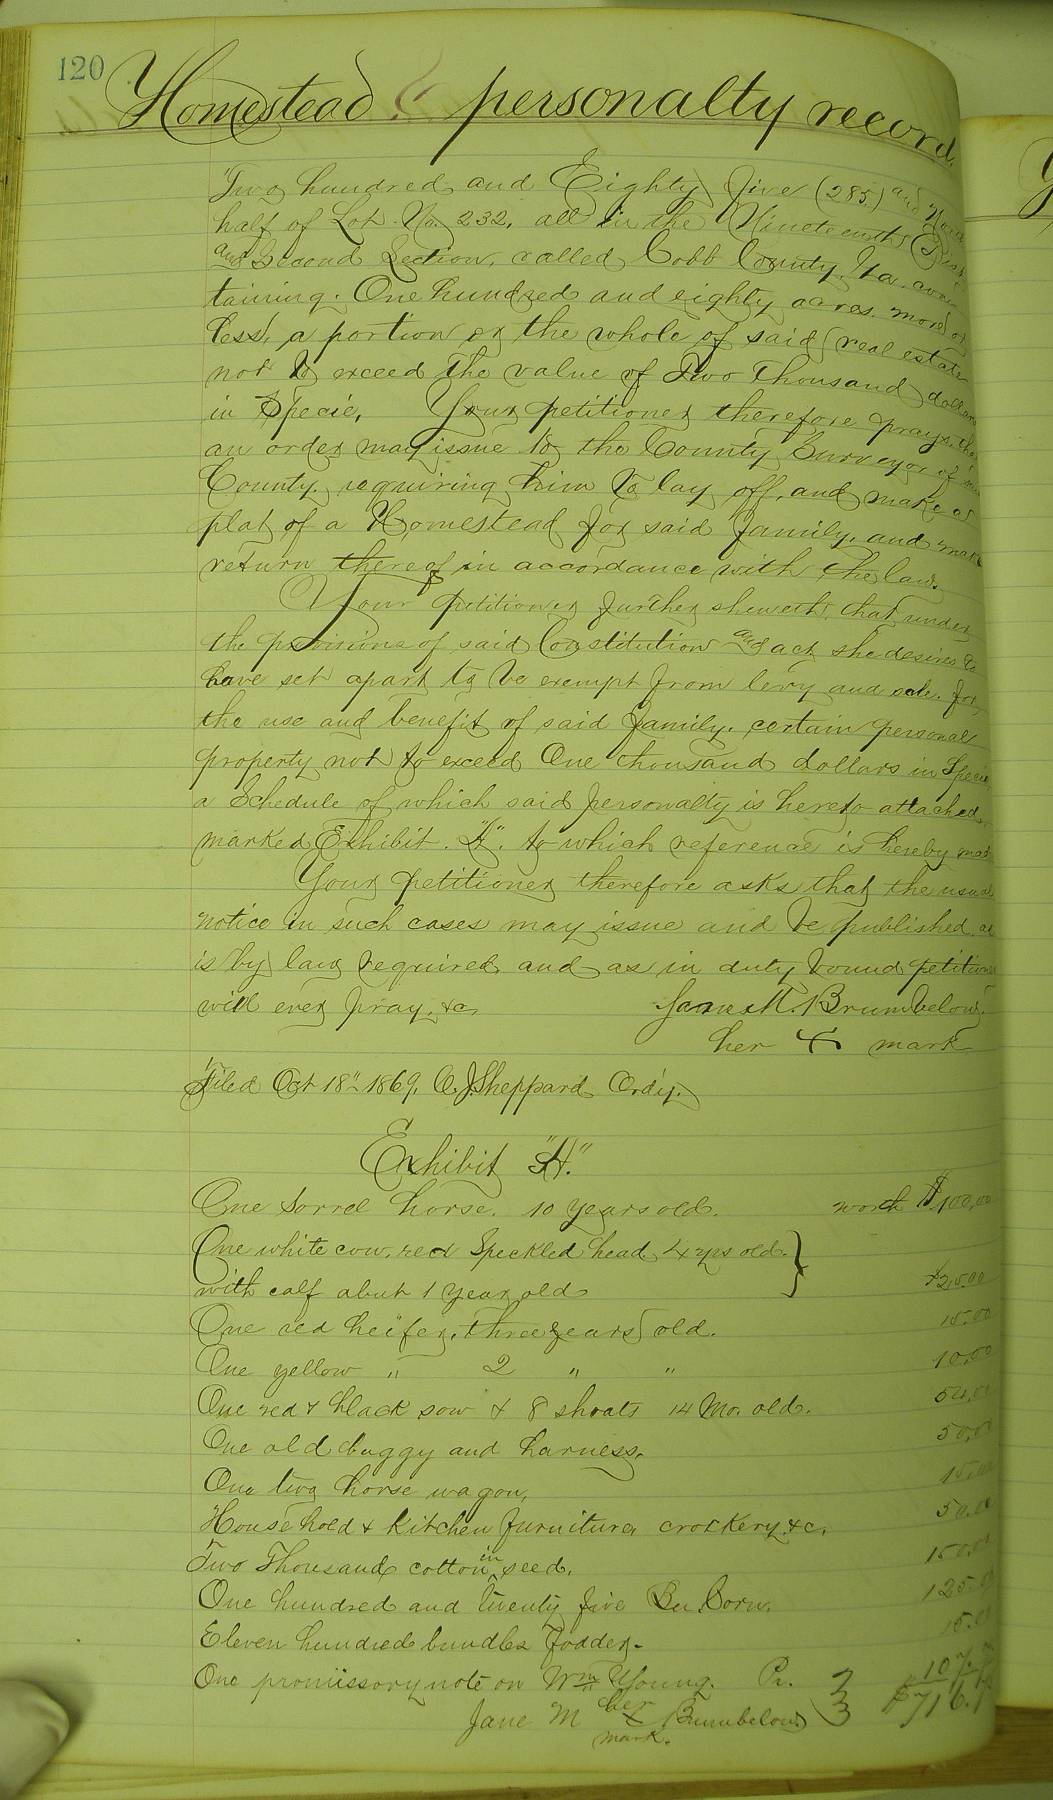 120
Homestead & personalty record.
Two hundred and Eighty five (285) and North
half of Lot No. 232, all in the Nineteenth Dist
and Second Section, called Cobb County, Ga. con
taining. One hundred and eighty acres. more or
less, a portion or the whole of said real estate
not to exceed the value of Two thousand dollars
in Specie. Your petitioner therefore prays, that
an order may issue to the County Surveyor of said
County. requiring him to lay off, and make a
plat of a Homestead for said family, and make
return thereof in accordance with the law.
Your petitioner further sheweth, that under
the provisions of said Constitution and act she desires to
have set apart to be exempt from levy and sale. for
the use and benefit of said family. certain personal
property not to exceed One thousand dollars in Specie
a Schedule of which said personalty is hereto attached,
marked Exhibit. "A". to which reference is hereby made
Your petitioner therefore asks that the usual
notice in such cases may issue and be published as
is by law required and as in duty bound petitioner
will ever pray, &c Jane M. Brumbelow.
her X mark
Filed Oct 18" 1869, C. J. Sheppard Ordy.
Exhibit "A."
One Sorrel horse. 10 years old. worth $100.00
One white cow, red Speckled head 4 yrs old.
with calf about 1 year old $25.00
One red heifer, three years old. 15.00
One yellow " 2 " " 10.00
One red & black sow & 8 shoats 14 Mo. old. 54.00
One old buggy and harness. 50.00
One two horse wagon, 15.00
Household & Kitchen furniture crockery &c. 50.00
Two Thousand cotton in seed. 150.00
One hundred and twenty five Bu Corn. 125.00
Eleven hundred bundles fodder. 15.00
One promissory note on Wm Young. Pr. 107.
Jane M her X Brumbelow $716.
mark.